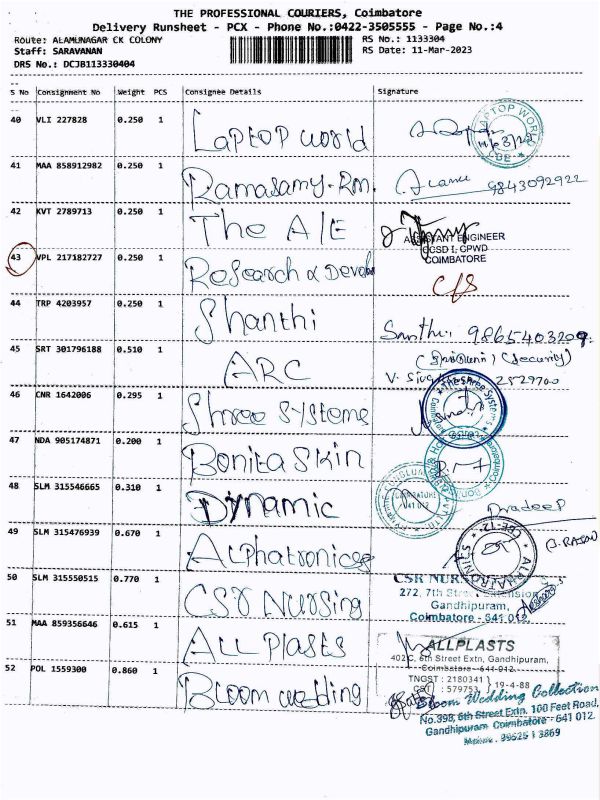 THE PROFESSIONAL COURIERS, Coimbatore
Delivery Runsheet - PCX - Phone No.:0422-3505555 - Page No.:4
Route: ALAMUNAGAR CK COLONY RS No.: 1133304
Staff: SARAVANAN RS Date: 11-Mar-2023
DRS No.: DCJB113330404
S No Consignment No Weight PCS Consignee Details Signature
40 VLI 227828 0.250 1 Laptop world LAPTOP WORLD
41 MAA 858912982 0.250 1 Ramasamy.Rm. 9843092922
42 KVT 2789713 0.250 1 The A/E
ASSISTANT ENGINEER
CCSD I, CPWD
COIMBATORE
43 VPL 217182727 0.250 1 Research & Develo C/S
44 TRP 4203957 0.250 1 Shanthi
45 SRT 301796188 0.510 1 ARC (Security)
2529700
46 CNR 1642006 0.295 1 Shree Systems The Shree Systems
47 NDA 905174871 0.200 1 Bonita Skin
48 SLM 315546665 0.310 1 Dynamic Pradeep
49 SLM 315476939 0.670 1 Alphatronics ALPHATRONICS
50 SLM 315550515 0.770 1 CSR Nursing
CSR NURSING
272, 7th Street Extension
Gandhipuram,
Coimbatore - 641 012.
51 MAA 859356646 0.615 1 ALL Plasts
ALLPLASTS
402C, 6th Street Extn, Gandhipuram,
Coimbatore - 641 012.
TNGST : 2180341
CST : 579753 19-4-88
52 POL 1559300 0.860 1 Bloom wedding
Bloom Wedding Collection
No.393, 6th Street Extn. 100 Feet Road,
Gandhipuram Coimbatore - 641 012.